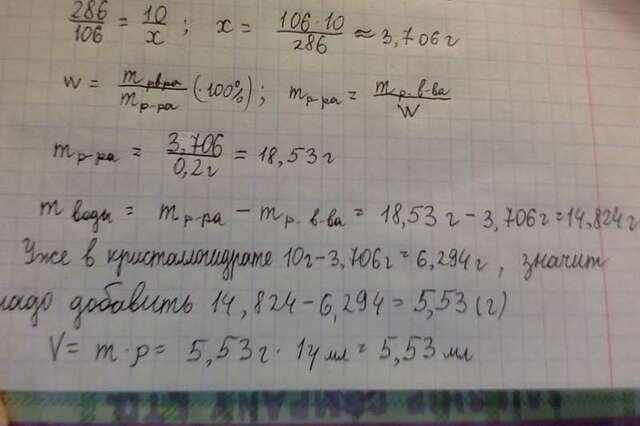 286/106 = 10/x ; x = 106·10/286 ≈ 3,706 г
W = m р.в-ва/m р-ра (·100%) ; m р-ра = m р. в-ва/W
m р-ра = 3,706/0,2 г = 18,53 г
m воды = m р-ра − m р. в-ва = 18,53 г − 3,706 г = 14,824 г
Уже в кристаллогидрате 10г − 3,706 г = 6,294 г , значит
надо добавить 14,824 − 6,294 = 5,53 (г)
V = m · ρ = 5,53 г · 1 г/мл = 5,53 мл